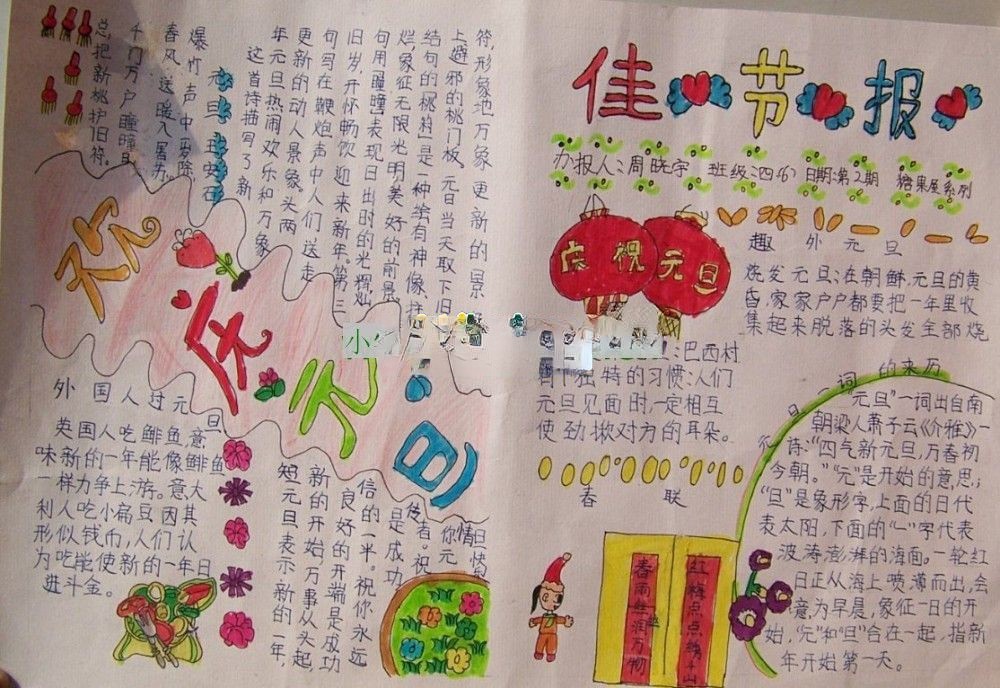 佳节报
办报人:周晓宇 班级:四(6) 日期:第2期 糖果屋系列
庆祝元旦
趣外元旦
烧发元旦:在朝鲜,元旦的黄
昏,家家户户都要把一年里收
集起来脱落的头发全部烧
:巴西村
有个独特的习惯:人们
元旦见面时,一定相互
使劲揪对方的耳朵。
春联
春雨丝丝润万物
红梅点点绣千山
元旦一词的来历
元旦"一词出自南
朝梁人萧子云《介雅》一
诗:"四气新元旦,万春初
今朝。"“元”是开始的意思;
"旦"是象形字,上面的日代
表太阳,下面的"一"字代表
波涛澎湃的海面。一轮红
日正从海上喷薄而出,会
意为早晨,象征一日的开
始,"元"和"旦"合在一起,指新
年开始第一天。
元旦王安石
爆竹声中岁除
春风送暖入屠苏
千门万户曈曈日
总把新桃护旧符。
这首诗描写了新
年元旦热闹欢乐和万象
更新的动人景象,头两
句写在鞭炮声中人们送走
旧岁,开怀畅饮迎来新年。第三
句用"曈曈"表现日出时的光辉灿
烂,象征无限光明美好的前景
结句的"桃符"是一种绘有神像、挂
上避邪的桃门板,元日当天取下旧
符,形象地万象更新的景
祝庆元旦
外国人过元旦
英国人吃鲱鱼,意
味新的一年能像鲱鱼
一样力争上游。意大
利人吃小扁豆,因其
形似钱币,人们认
为吃能使新的一年日
进斗金。
短元旦表示新的一年,
新的开始万事从头起,
良好的开端是成功
信的一半。祝你永远
是成功
使者。祝
你元